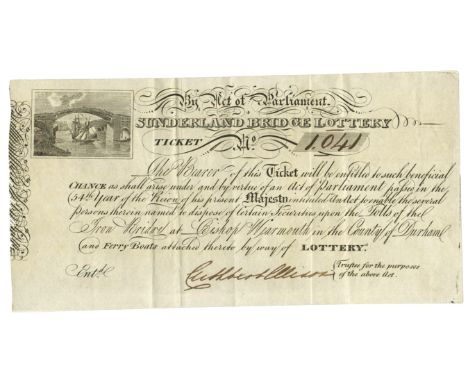 By Act of Parliament.
SUNDERLAND BRIDGE LOTTERY
TICKET No. 1041
The Bearer of this Ticket will be entitled to such beneficial
CHANCE as shall arise under and by virtue of an Act of Parliament passed in the
(54th Year of the Reign of his present Majesty intituled An Act to enable the several
Persons therein named to dispose of Certain Securities upon the Tolls of the
Iron Bridge at Bishop Wearmouth in the County of Durham
and Ferry Boats attached thereto by way of LOTTERY.
Entd.
Cuthbert Ellison
(Trustee for the purposes
of the above Act.